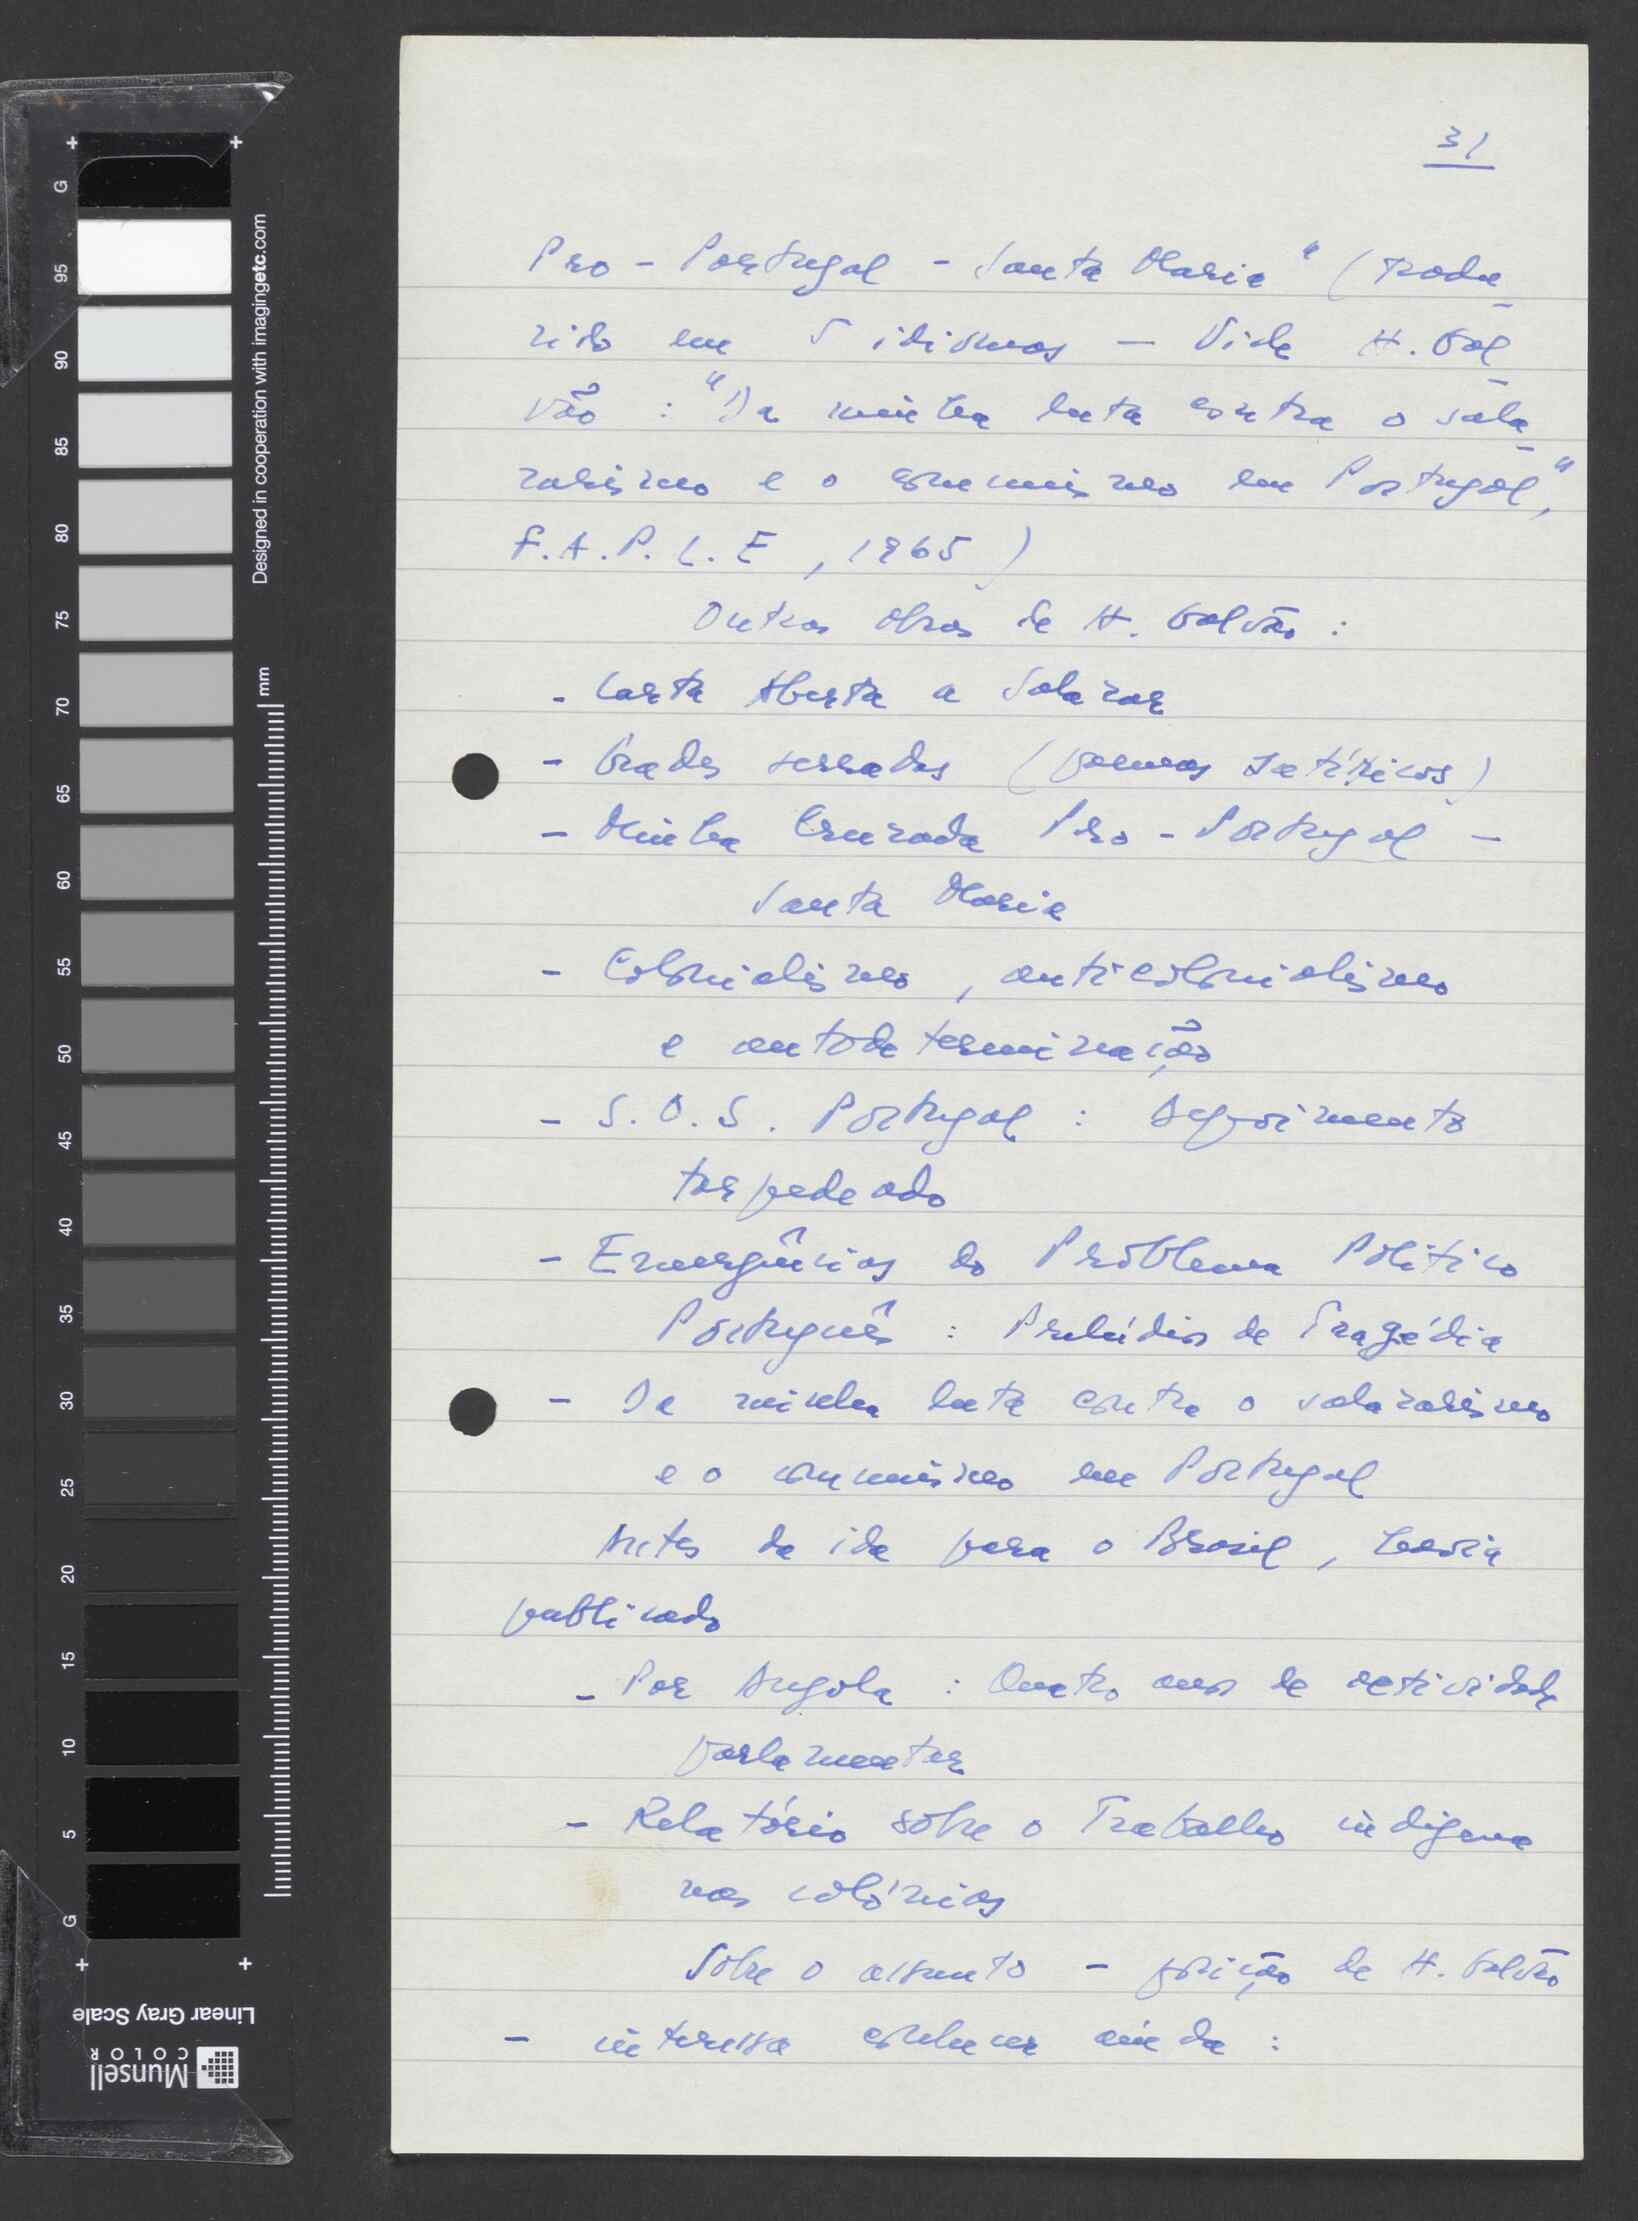 31
Pro - Portugal - Santa Maria" (tradu-
zido em 5 idiomas - Vide H. Gal-
vão : "Da minha luta contra o sala-
zarismo e o comunismo em Portugal",
F.A.P.L.E, 1965)
Outras obras de H. Galvão :
- Carta Aberta a Salazar
- Grades serradas (poemas satíricos)
- Minha Cruzada Pro - Portugal -
Santa Maria
- Colonialismo, anticolonialismo
e autodeterminação
- S.O.S. Portugal : Depoimento
torpedeado
- Emergências do Problema Político
Português : Prelúdios de Tragédia
- Da minha luta contra o salazarismo
e o comunismo em Portugal
Antes da ida para o Brasil, havia
publicado
- Por Angola : Quatro anos de actividade
parlamentar
- Relatório sobre o Trabalho indígena
nas colónias
Sobre o assunto - posição de H. Galvão
- interessa conhecer ainda :
Designed in cooperation with imagingetc.com
mm
G
95
90
85
80
75
70
65
60
55
50
45
40
35
30
25
20
15
10
5
G
Linear Gray Scale
Munsell
COLOR